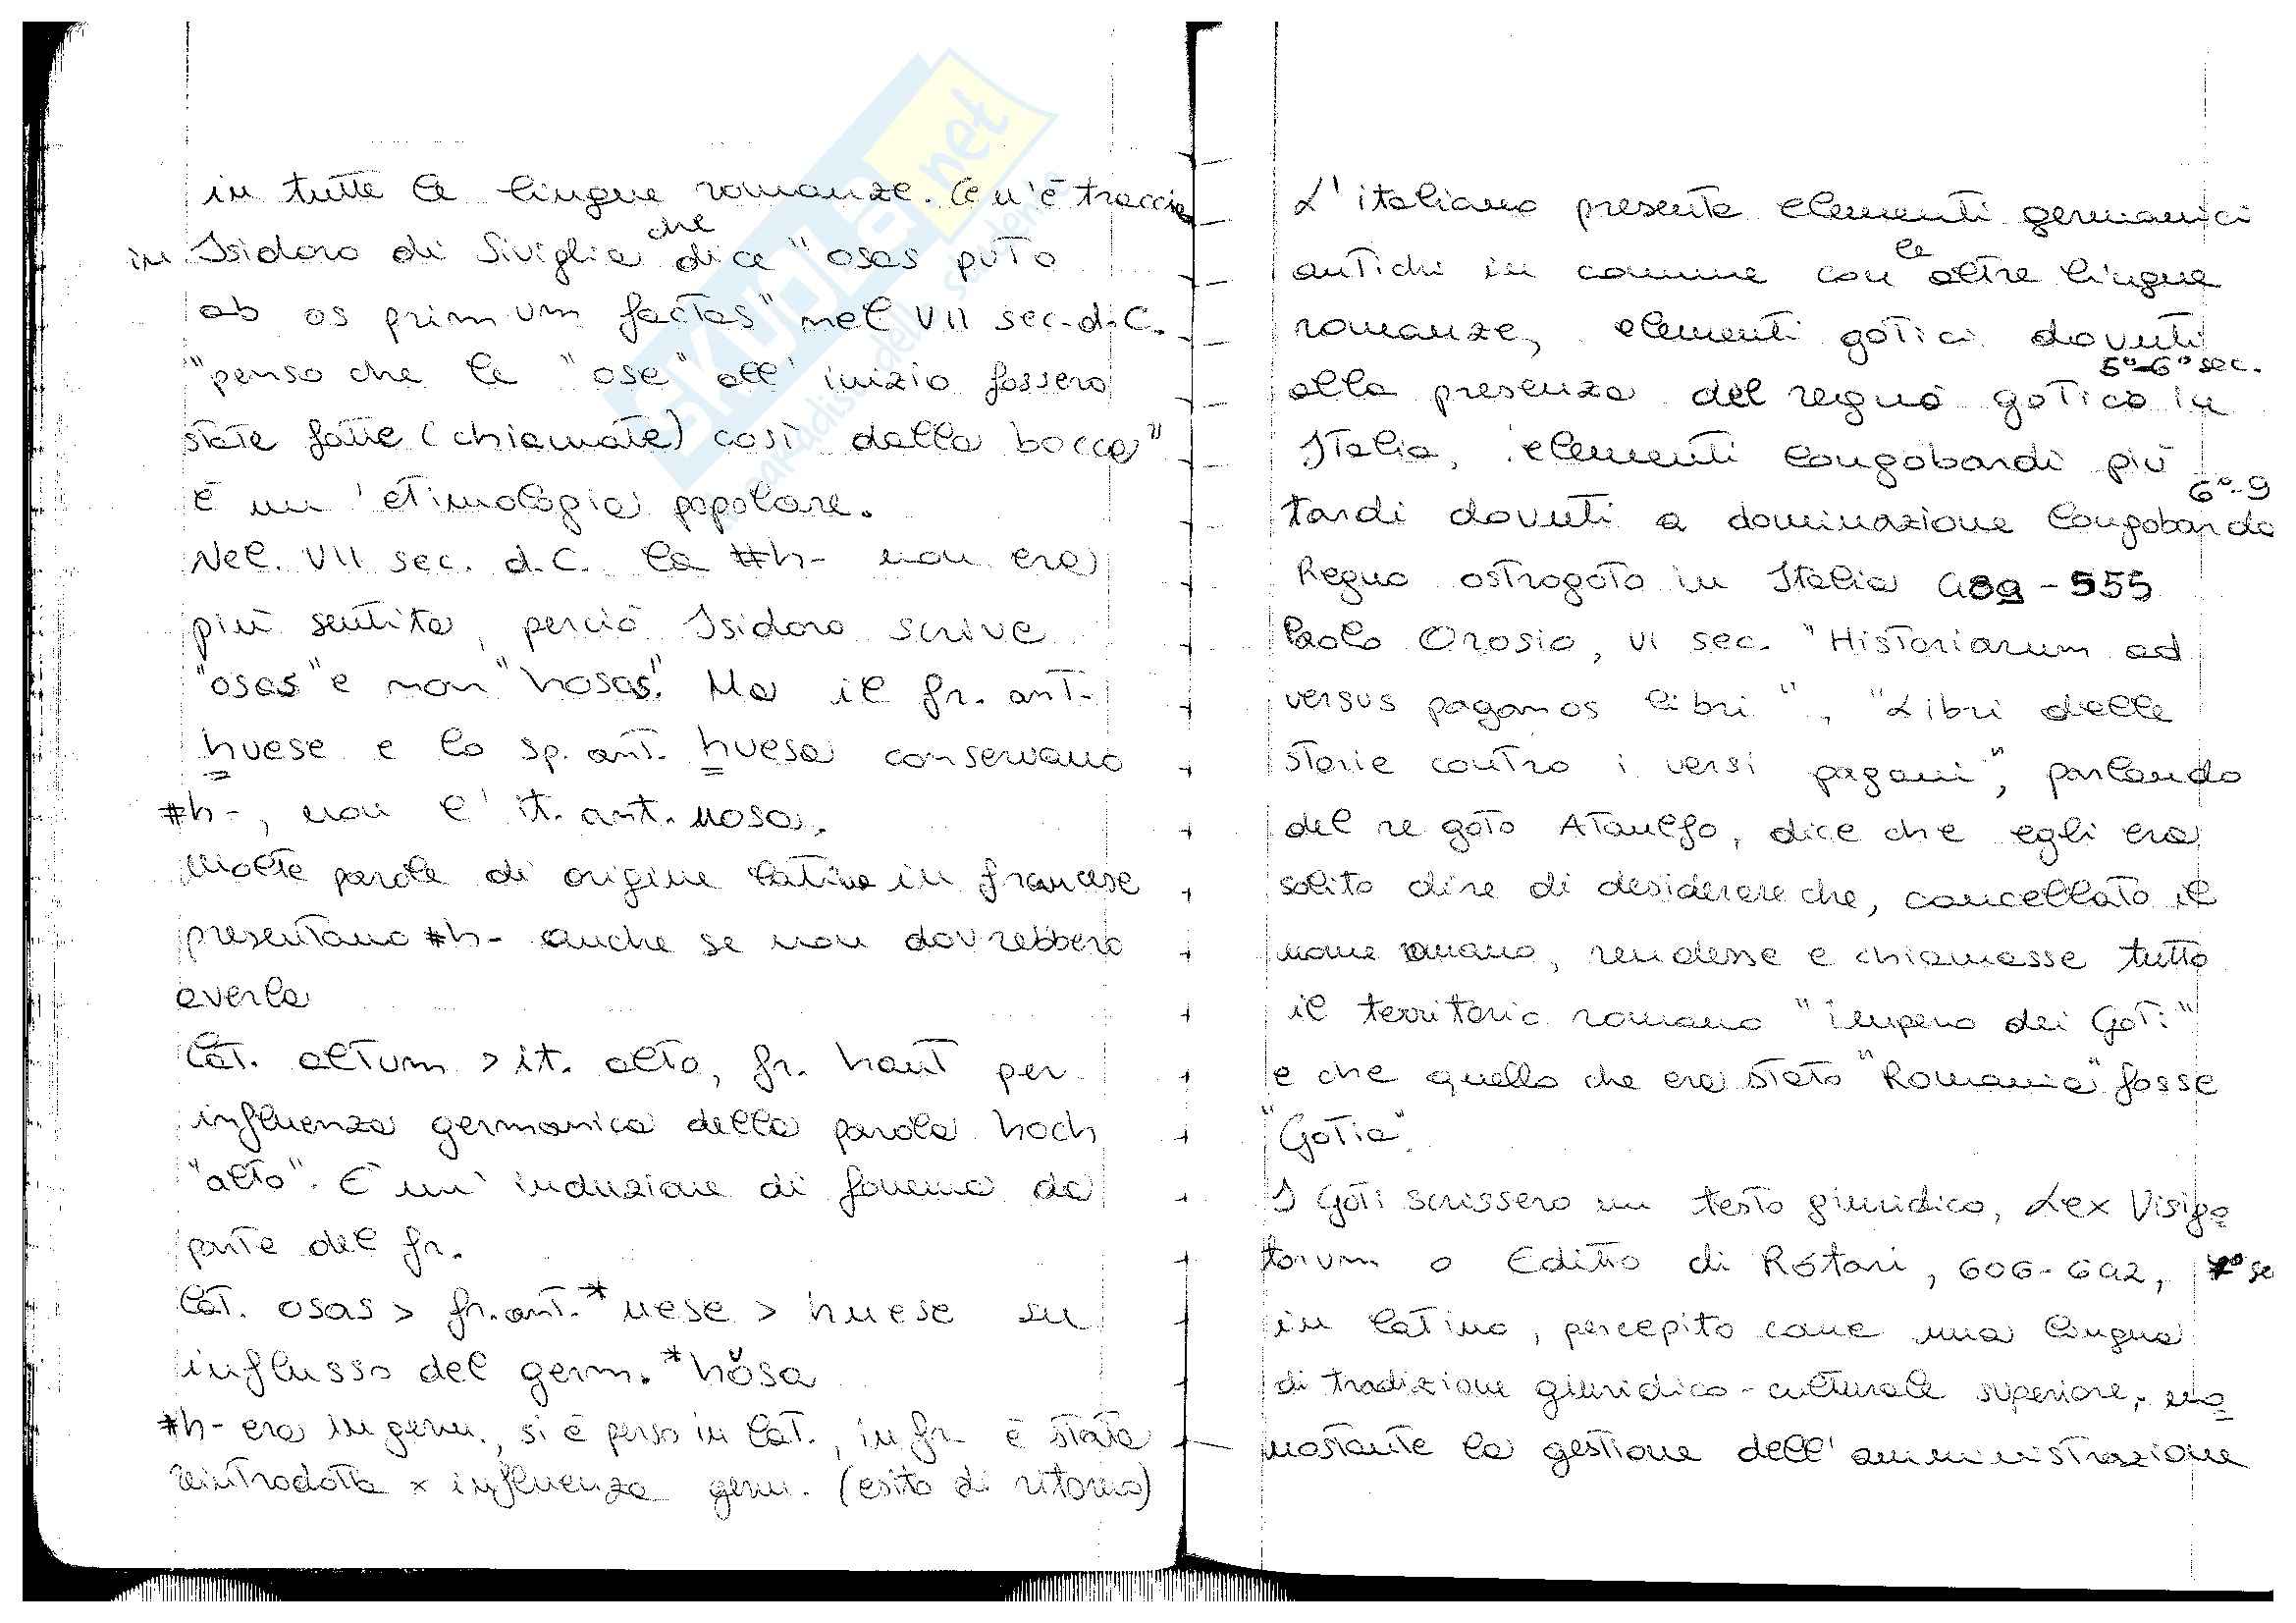 in tutte le lingue romanze. Ce n'è traccia
in Isidoro di Siviglia che dice "osas puto
ab os primum factas" nel VII sec. d.C.
"penso che le "ose" all'inizio fossero
state fatte (chiamate) così dalla bocca"
È un'etimologia popolare.
Nel VII sec. d.C. la #h- non era
più sentita, perciò Isidoro scrive
"osas" e non "hosas". Ma il fr. ant.
huese e lo sp. ant. huesa conservano
#h-, non l'it. ant. uosa.
Molte parole di origine latina in francese
presentano #h- anche se non dovrebbero
averla
Lat. altum > it. alto, fr. haut per
influenza germanica della parola hoch
"alto". È un'induzione di fonema da
parte del fr.
Lat. osas > fr. ant. *uese > huese su
influsso del germ. *hŏsa
#h- era in germ., si è perso in lat., in fr. è stata
reintrodotta x influenza germ. (esito di ritorno)
L'italiano presenta elementi germanici
antichi in comune con le altre lingue
romanze, elementi gotici dovuti
alla presenza del regno gotico in 5°-6° sec.
Italia, elementi longobardi più
tardi dovuti a dominazione longobarda 6°-9
Regno ostrogoto in Italia 489-555
Paolo Orosio, VI sec. "Historiarum ad
versus paganos libri", "Libri delle
storie contro i versi pagani", parlando
del re goto Ataulfo, dice che egli era
solito dire di desiderare che, cancellato il
nome romano, rendesse e chiamasse tutto
il territorio romano "impero dei Goti"
e che quello che era stato "Romania" fosse
"Gotia".
I Goti scrissero un testo giuridico, Lex Visigo
torum o Editto di Rotari, 606-642, 7° se
in latino, percepito come una lingua
di tradizione giuridico-culturale superiore, no
nostante la gestione dell'amministrazione
skuola.net